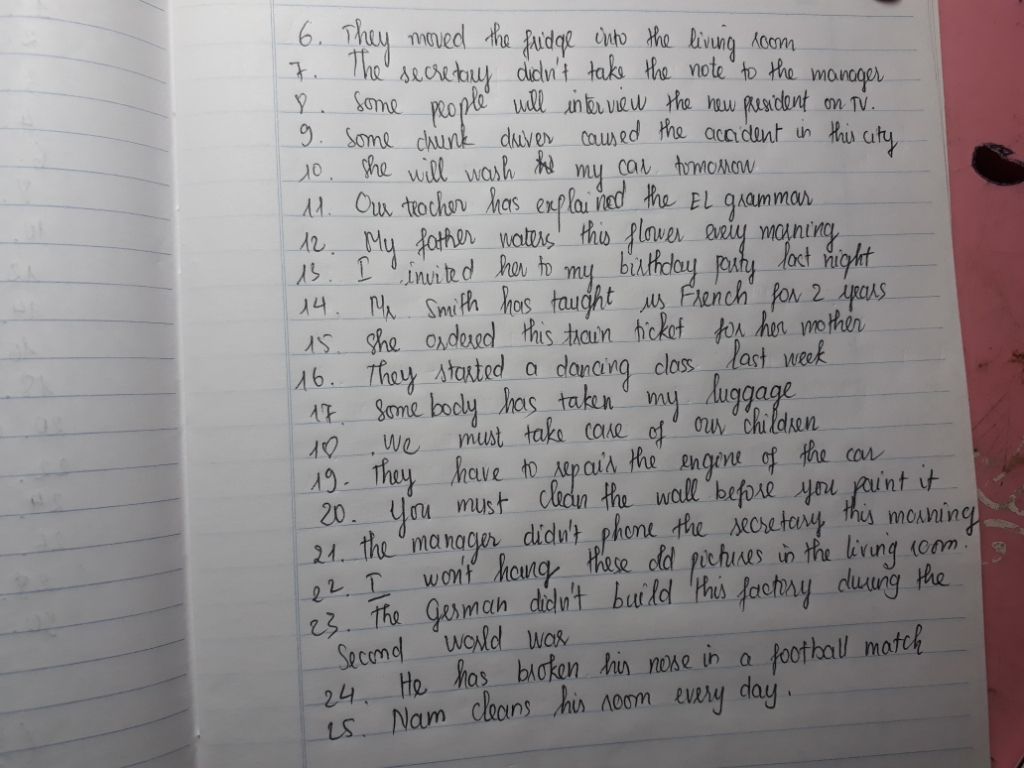 6. They moved the fridge into the living room
7. The secretary didn't take the note to the manager
8. Some people will interview the new president on TV.
9. Some drunk driver caused the accident in this city
10. She will wash my car tomorrow
11. Our teacher has explained the EL grammar
12. My father waters this flower every morning
13. I invited her to my birthday party last night
14. Mr Smith has taught us French for 2 years
15. She ordered this train ticket for her mother
16. They started a dancing class last week
17. Somebody has taken my luggage
18. We must take care of our children
19. They have to repair the engine of the car
20. You must clean the wall before you paint it
21. the manager didn't phone the secretary this morning
22. I won't hang these old pictures in the living room.
23. The German didn't build this factory during the
Second world war
24. He has broken his nose in a football match
25. Nam cleans his room every day.